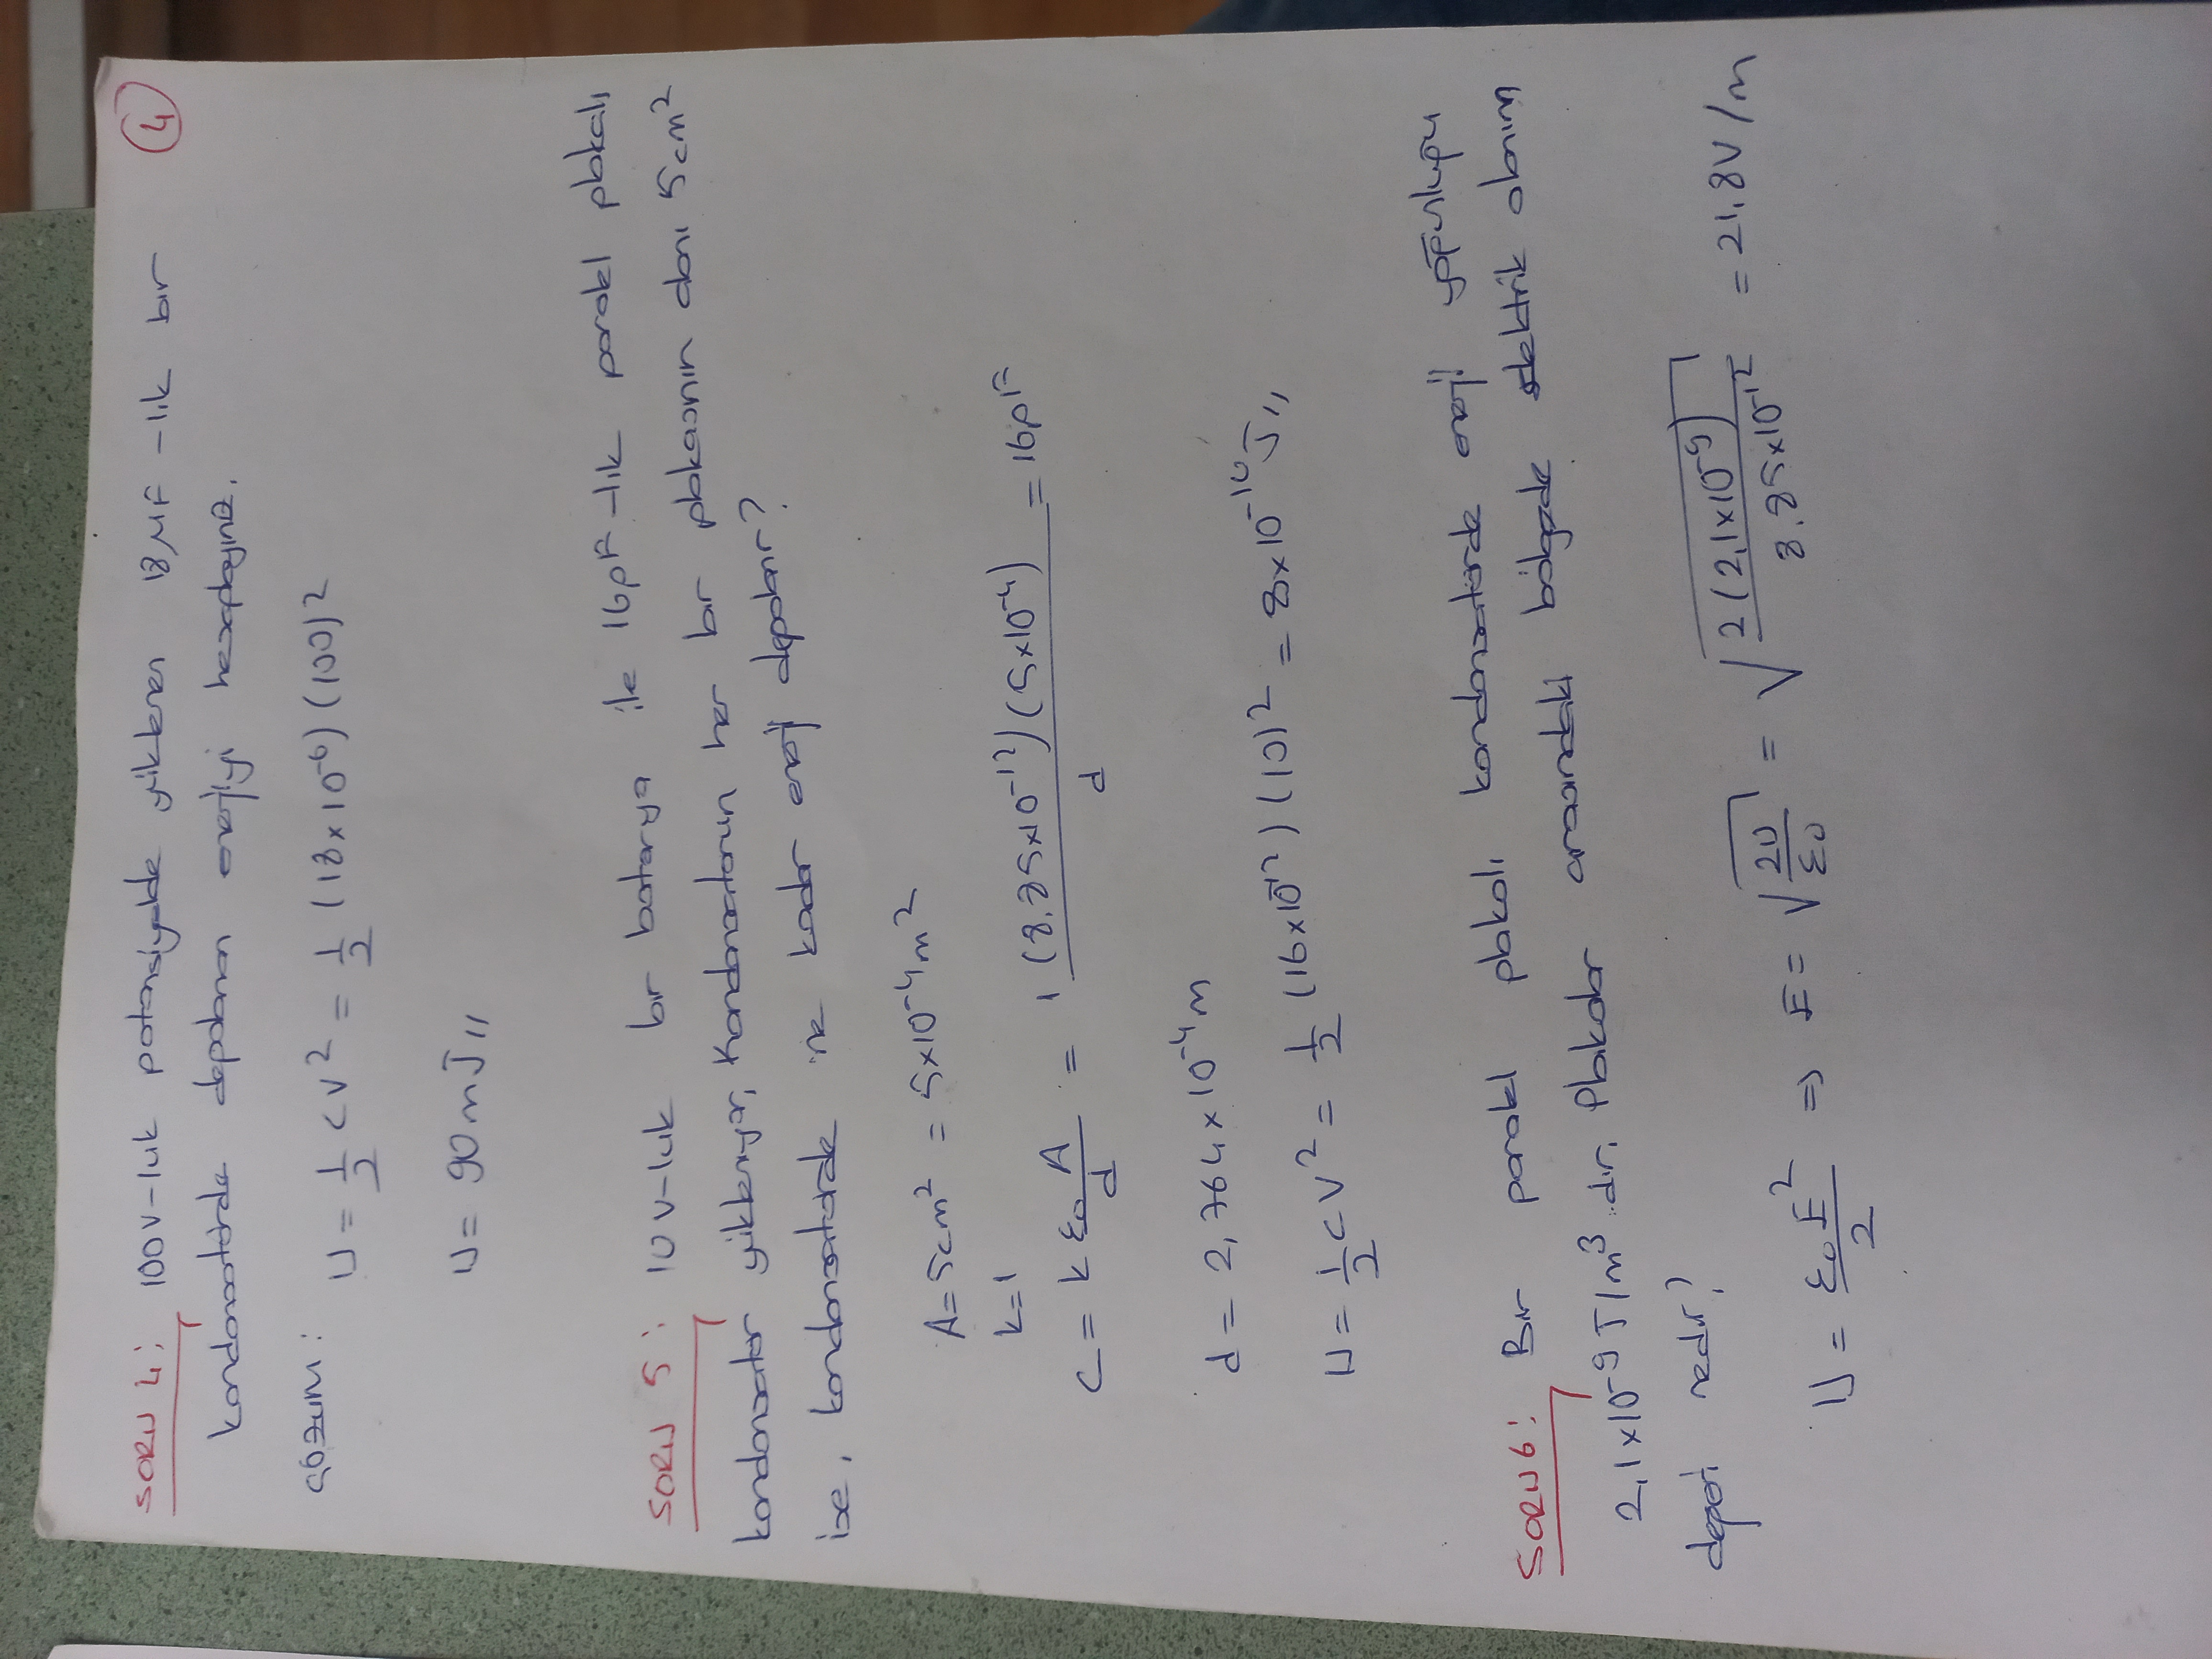 SORU 4: 100V-luk potansiyelde yüklenen 18μF-lık bir
④
kondansatörde depolanan enerjiyi hesaplayınız.
ÇÖZÜM: U = 1/2 CV² = 1/2 (18x10⁻⁶)(100)²
U = 90mJ//
SORU 5: 10V-luk bir batarya ile 16pF-lık paralel plakalı
kondansatör yükleniyor, Kondansatörün her bir plakasının alanı 5cm²
ise, kondansatörde ne kadar enerji depolanır?
A = 5cm² = 5x10⁻⁴m²
k=1
C = kε₀ A/d = 1 (8.85x10⁻¹²)(5x10⁻⁴)/d = 16pF
d = 2,764x10⁻⁴m
U = 1/2 CV² = 1/2 (16x10⁻¹²)(10)² = 8x10⁻¹⁰J//
SORU 6: Bir paralel plakalı kondansatörde enerji yoğunluğu
2,1x10⁻⁹J/m³ dir. Plakalar arasındaki bölgede elektrik alanın
değeri nedir?
U = ε₀E²/2 ⇒ E = √(2U/ε₀) = √(2(2,1x10⁻⁹)/8.85x10⁻¹²) = 21,8V/m